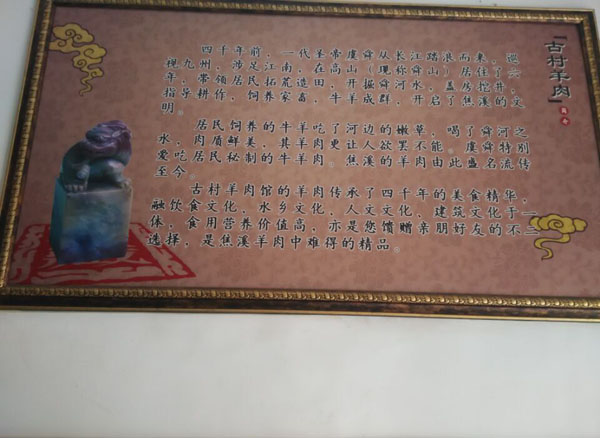 古村羊肉
四千年前，一代圣帝虞舜从长江踏浪而来，巡
视九州，涉足江南，在高山（现称舜山）居住了六
年，带领居民拓荒造田，开掘舜河水，盖房挖井，
指导耕作，饲养家畜，牛羊成群，开启了焦溪的文
明。
居民饲养的牛羊吃了河边的嫩草，喝了舜河之
水，肉质鲜美，其羊肉更让人欲罢不能。虞舜特别
爱吃居民秘制的牛羊肉，焦溪的羊肉由此盛名流传
至今。
古村羊肉馆的羊肉传承了四千年的美食精华，
融饮食文化，水乡文化，人文文化，建筑文化于一
体，食用营养价值高，亦是您馈赠亲朋好友的不二
选择，是焦溪羊肉中难得的精品。